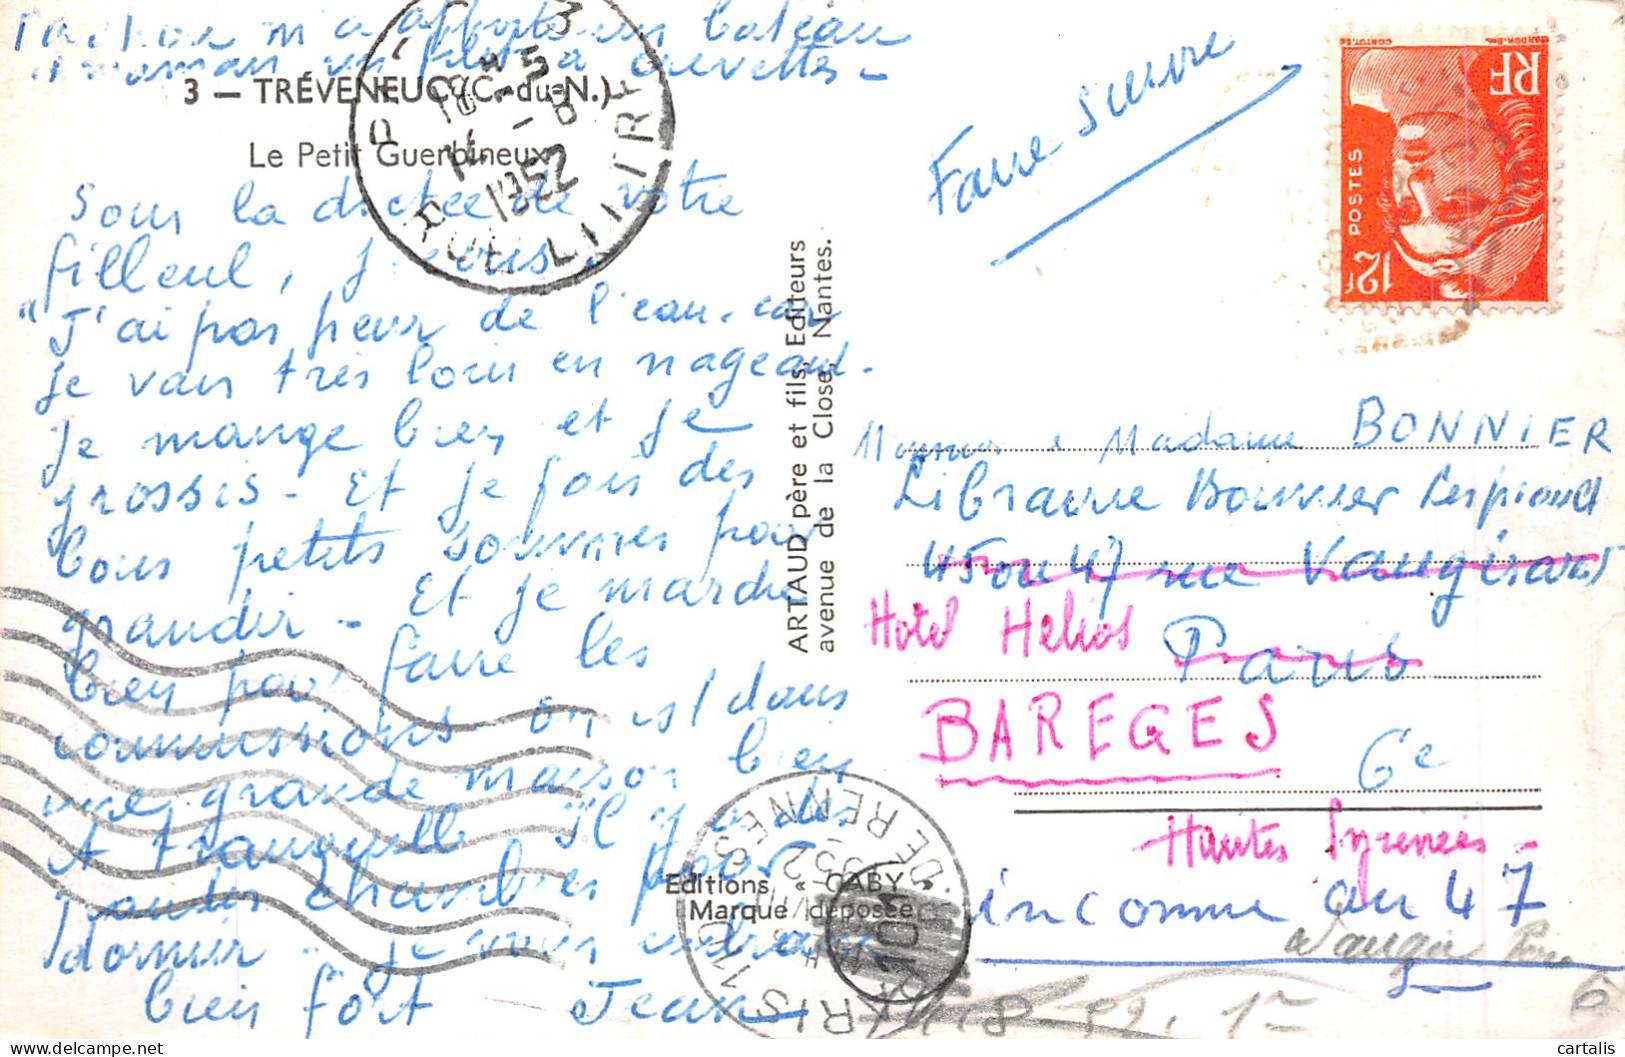 m'a apporté un bateau
et maman un filet à crevettes -
3 — TRÉVENEUC (C.-du-N.)
Le Petit Guerbineux
Sous la dictée de votre
filleul, j'écris.
"J'ai pas peur de l'eau. car
je vais très loin en nageant.
Je mange bien et je
grossis - Et je fais des
bons petits sommes pour
grandir - Et je marche
bien pour faire les
commissions on est dans
une grande maison bien
tranquille Il y a des
chambres pour
dormir - je vous embrasse
bien fort Jean
ARTAUD père et fils, Editeurs
avenue de la Close, Nantes.
Editions « GABY »
Marque déposée
Faire suivre
RF
POSTES
12f
1952
RUE LITTRÉ
GARE DE RENNES
Monsieur & Madame BONNIER
Librairie Bonnier Lespiaud
45 ou 47 rue Vaugirard
Hotel Helios
Paris
BAREGES
6e
Hautes Pyrénées -
inconnu au 47
cartalis
delcampe.net